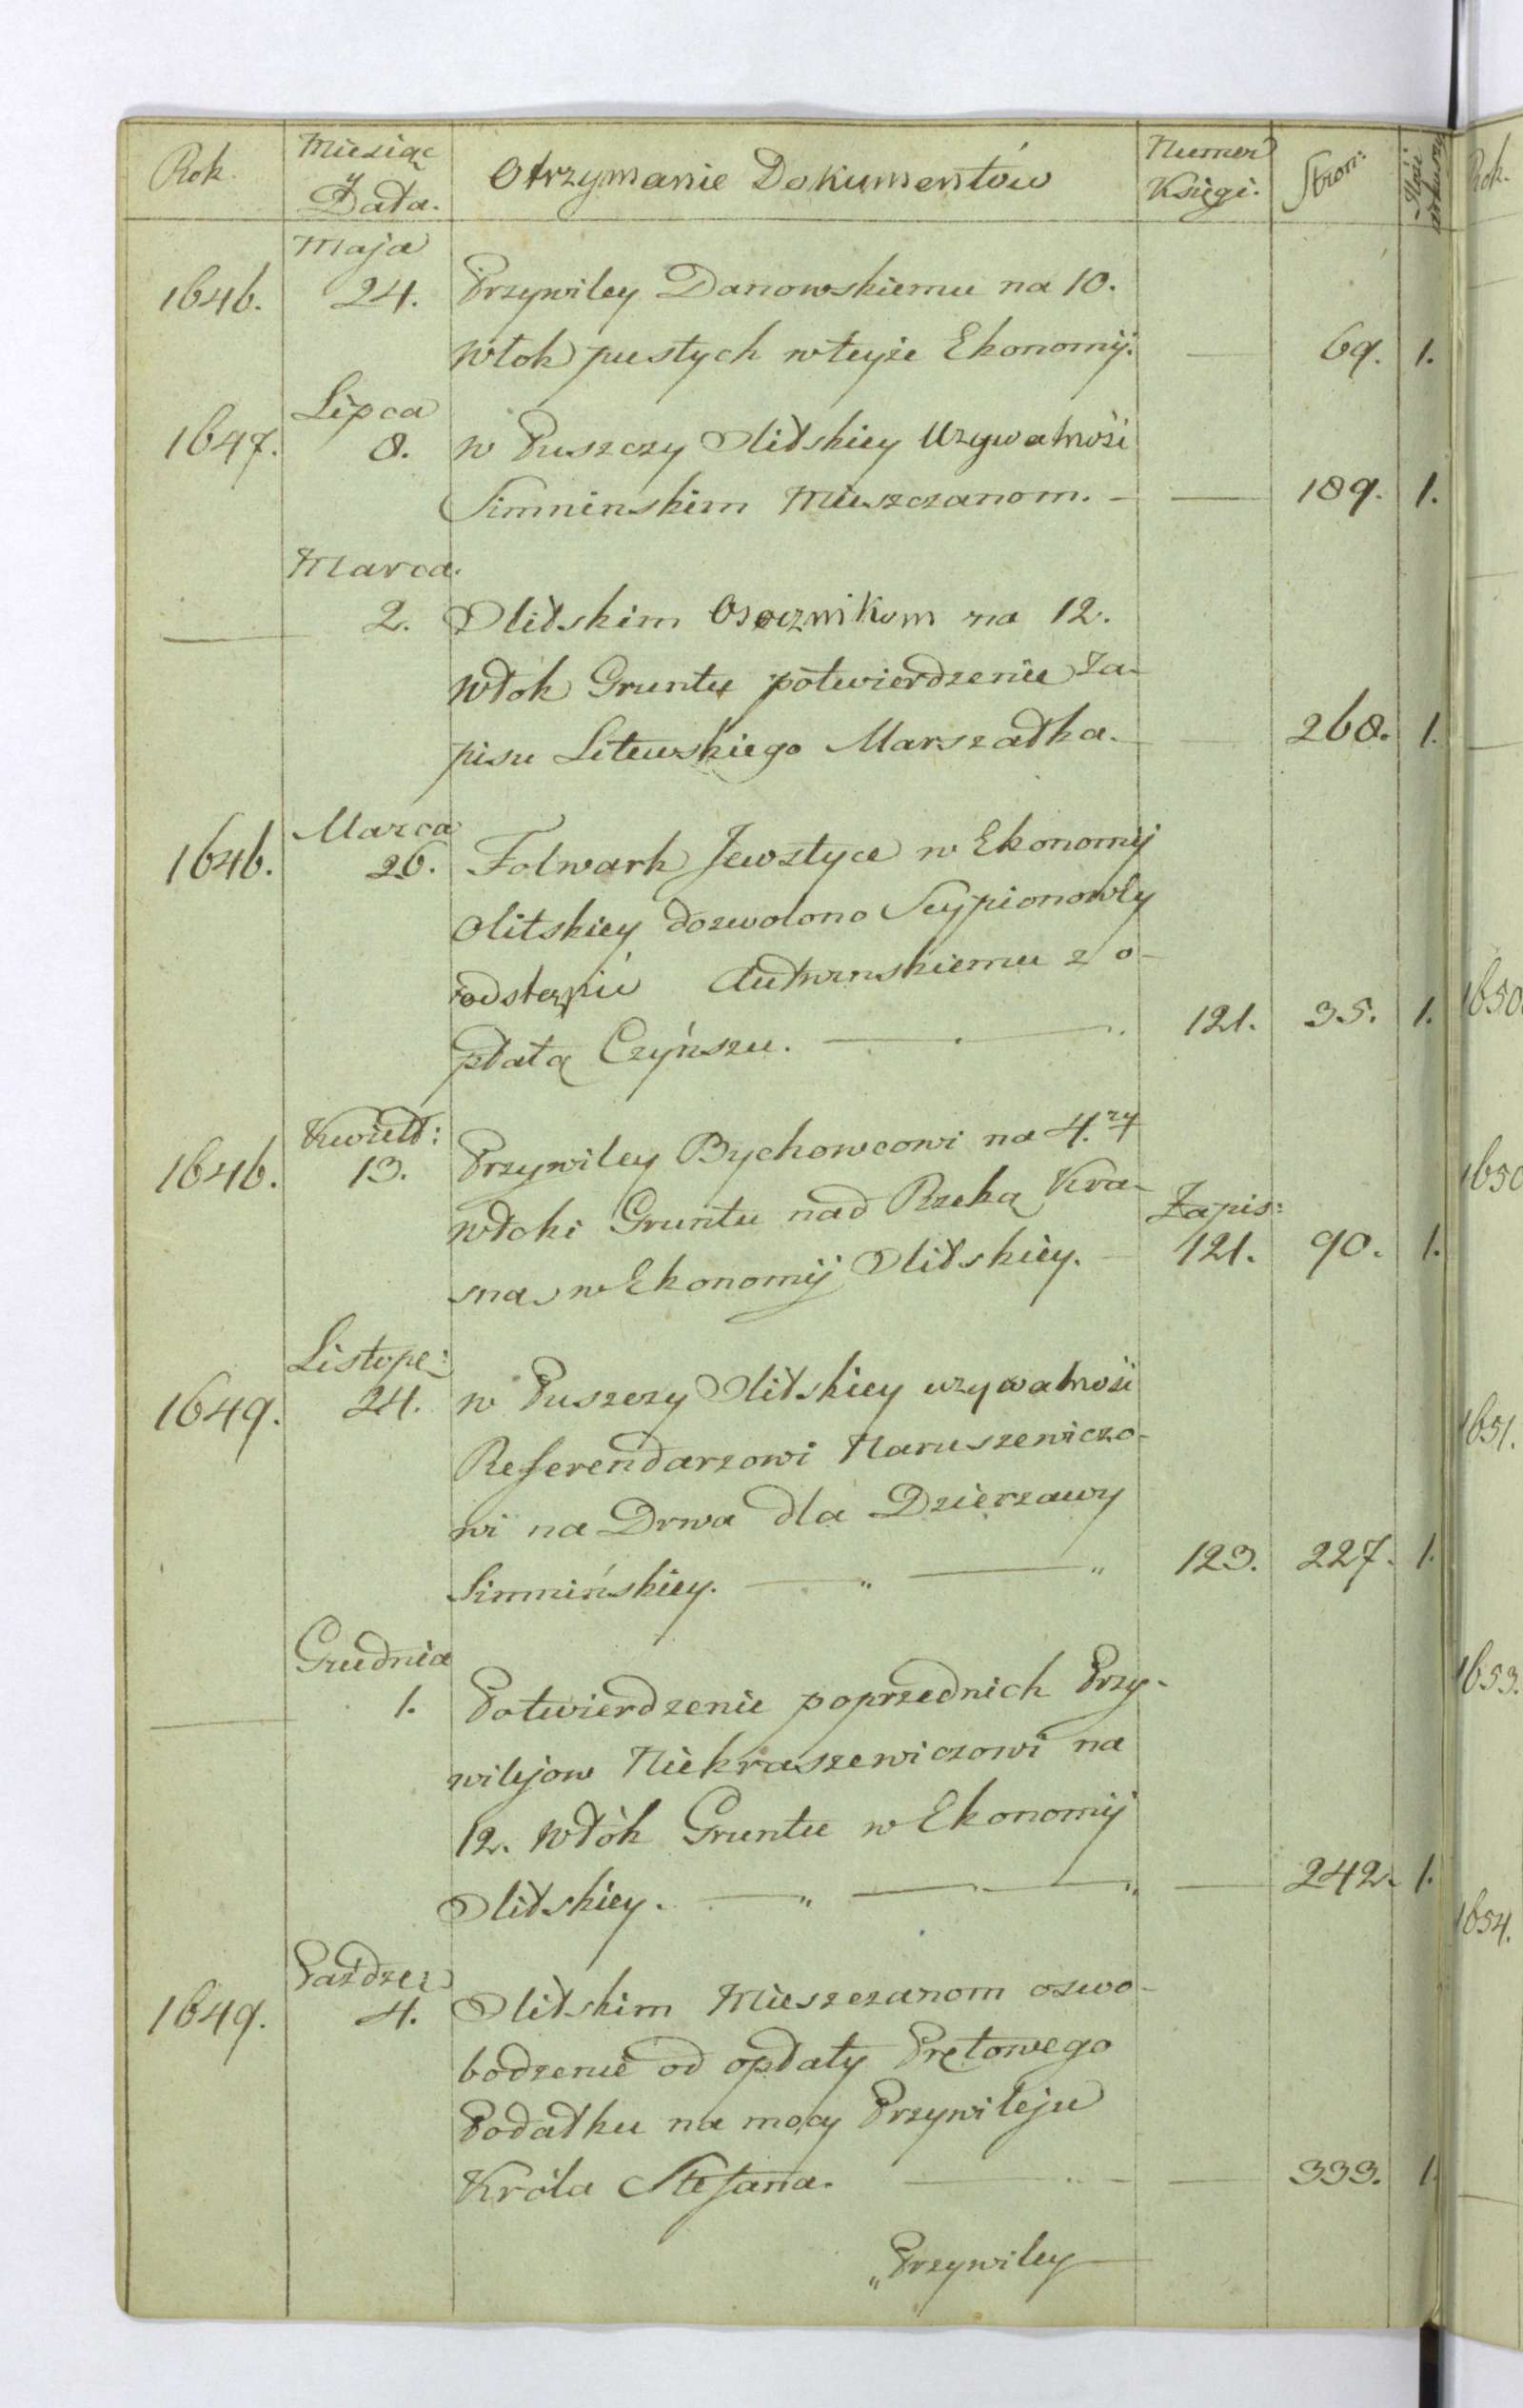 Rok. Miesiąc Numer Stron: Ilość
y Data. Otrzymanie Dokumentów Księgi. arkuszy
Maja
1646. 24. Przywiley Danowskiemu na 10.
Włok pustych w teyże Ekonomij. — 69. 1.
Lipca
1647. 8. w Puszczy Olitskiey Używalności
Simninskim Mieszczanom. — — 189. 1.
Marca.
— 2. Olitskim Osocznikom na 12.
Włok Gruntu potwierdzenie Za-
pisu Litewskiego Marszałka. — — 268. 1.
Marca
1646. 26. Folwark Jewstyce w Ekonomij
Olitskiey dozwolono Scypionowty
odstąpić z o-
płatą Czyńszu. — . — . 121. 35. 1.
Kwiett:
1646. 13. Przywiley Bychowcowi na 4.ry
włoki Gruntu nad Rzeką Kra- Zapis:
sna w Ekonomij Olitskiey. — 121. 90. 1.
Listope:
1649. 24. w Puszczy Olitskiey używalności
Referendarzowi Naruszewiczo-
wi na Drwa dla Dzierzawy
Simnińskiey. — „ — „ 123. 227. 1.
Grudnia
— 1. Potwierdzenie poprzednich Przy-
wilejow Niekraszewiczowi na
12. Włók Gruntu w Ekonomij
Olitskiey. — „ — — „ — 242. 1.
Paździer
1649. 4. Olitskim Mieszczanom oswo-
bodzenie od opłaty Prętowego
Podatku na mocy Przywileju
Króla Stefana. — — 333. 1.
„Przywiley
Rok.
1650.
1650
1651.
1653.
1654.